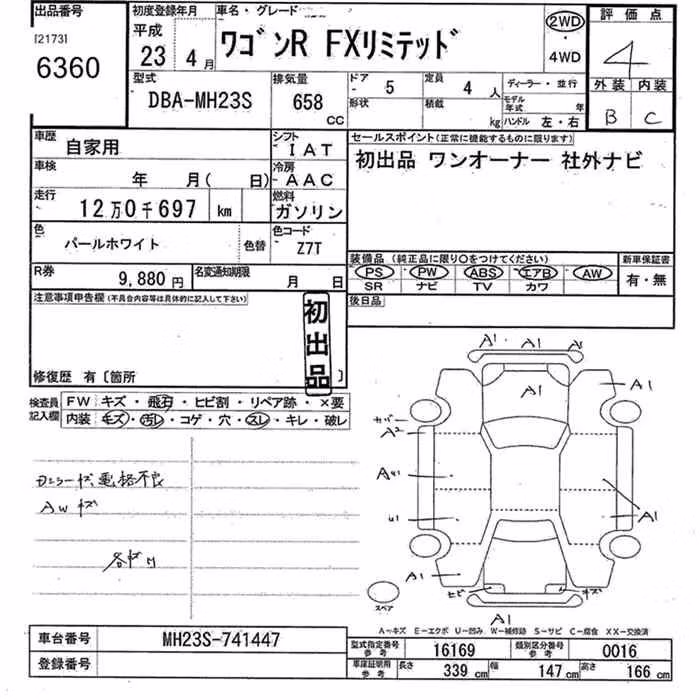 出品番号
[2173]
6360
初度登録年月
平成
23年 4月
車名・グレード
ワゴンR FXリミテッド
2WD
・
4WD
評価点
4
外装 内装
B C
型式
DBA-MH23S
排気量
658
CC
ドア
5
形状
定員
4 人
積載
kg
ディーラー・並行
モデル年式 年
ハンドル 左・右
車歴
自家用
シフト
IAT
車検
年 月( 日)
冷房
AAC
走行
12万0千697 km
燃料
ガソリン
色
パールホワイト
色替
色コード
Z7T
R券
9,880 円
名変通知期限
月 日
セールスポイント(正常に機能するものに限ります)
初出品 ワンオーナー 社外ナビ
装備品 (純正品に限り〇をつけてください)
PS PW ABS エアB AW
SR ナビ TV カワ
新車保証書
有・無
後日品
注意事項申告欄(不具合内容等は具体的に記入して下さい)
初出品
修復歴 有〔箇所 〕
検査員記入欄
FW キズ・飛石・ヒビ割・リペア跡・×要
内装 キズ・汚レ・コゲ・穴・スレ・キレ・破レ
電格不良
AW キズ
A1 A1 A1
A1 A1
A2
A1
A1
A1
スペア
A―キズ E―エクボ U―凹み W―補修跡 S―サビ C―腐食 XX―交換済
車台番号
MH23S-741447
登録番号
型式指定番号 参考
16169
類別区分番号 参考
0016
車庫証明用 参考
長さ 339 cm 幅 147 cm 高さ 166 cm